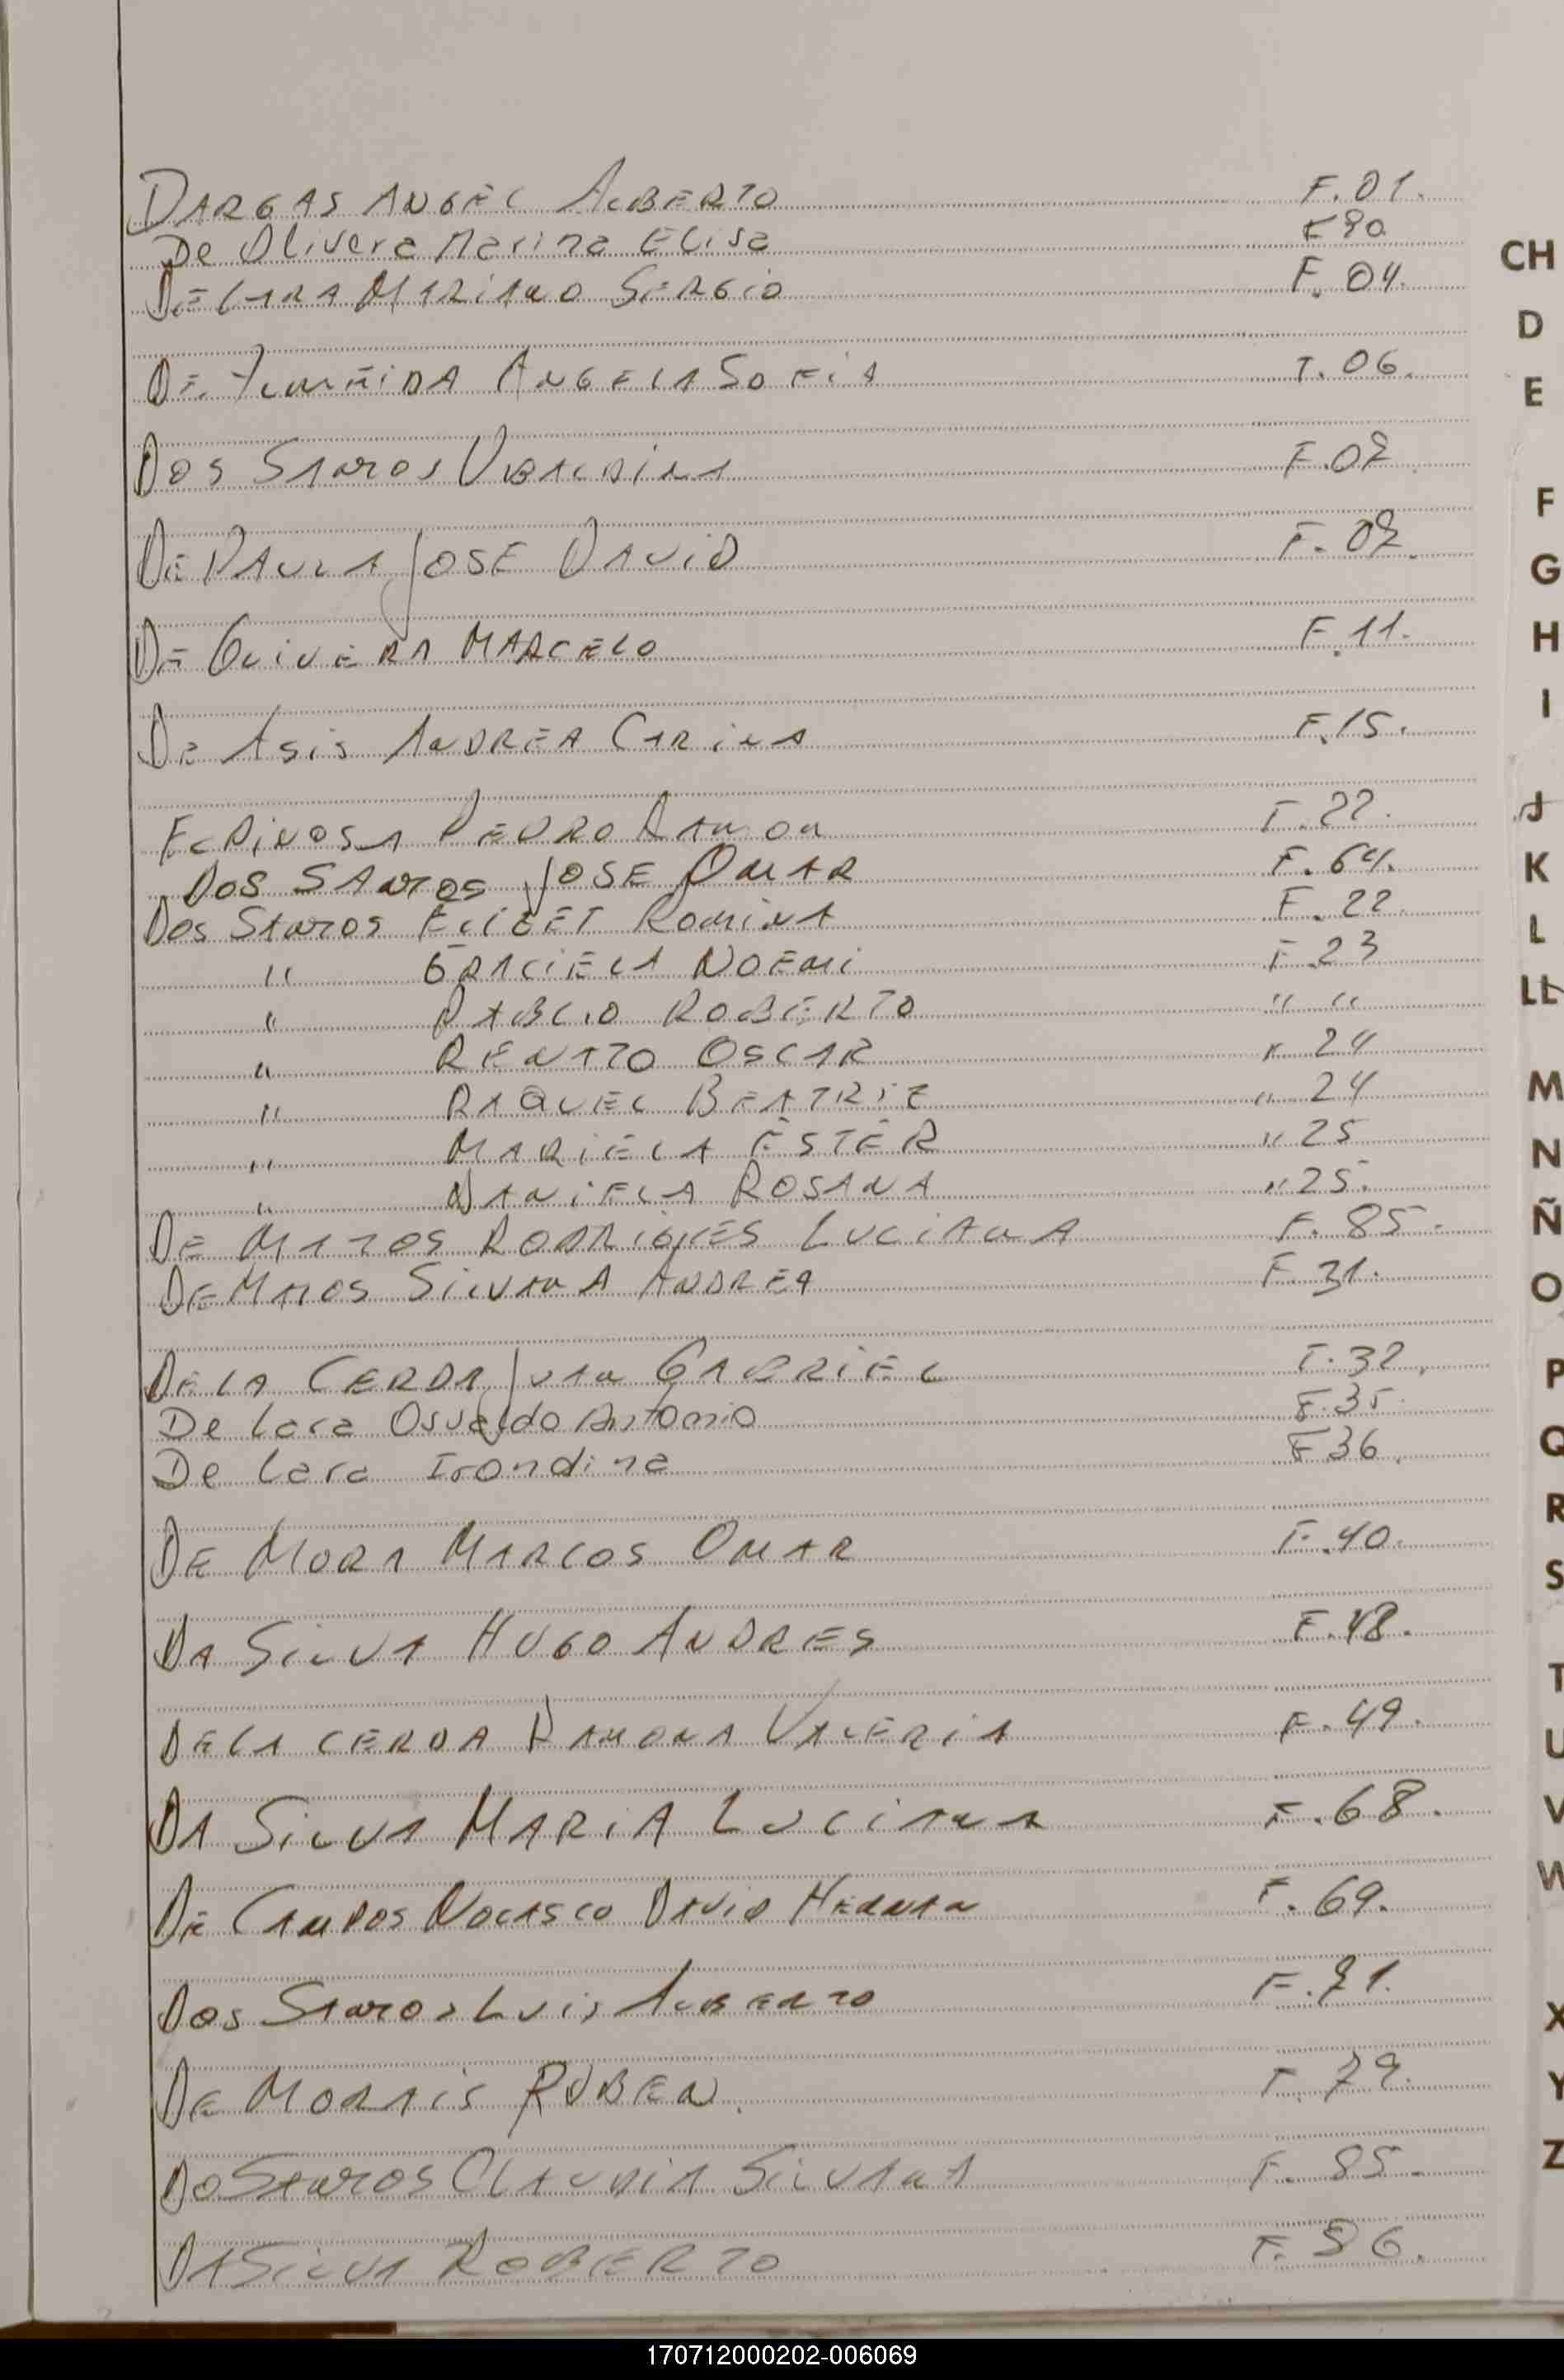 DARGAS ANGEL ALBERTO F. 01.
De Olivera Marina Elisa F 80
DE LARA MARIANO SERGIO F. 04.
DE ANGELA SOFIA F. 06.
DOS SANTOS UBALDINA F. 07
DE PAULA JOSE DAVID F. 07.
DE OLIVERA MARCELO F. 11.
DE ASIS ANDREA CARINA F. 15.
PEDRO RAMON F. 22.
DOS SANTOS JOSE OMAR F. 64.
DOS SANTOS ELIBET ROMINA F. 22.
" GRACIELA NOEMI F. 23
" PABLO ROBERTO " "
" RENATO OSCAR " 24
" RAQUEL BEATRIZ " 24
" MARIELA ESTER " 25
" DANIELA ROSANA " 25.
DE MATOS RODRIGUES LUCIANA F. 85.
DE MATOS SILVANA ANDREA F. 31.
DE LA CERDA JUAN GABRIEL F. 32.
De Lara Osvaldo Antonio F. 35.
De Lara Irondina F 36.
DE MORA MARCOS OMAR F. 40.
DA SILVA HUGO ANDRES F. 48.
DE LA CERDA RAMONA VALERIA F. 49.
DA SILVA MARIA LUCIANA F. 68.
DE CAMPOS NOLASCO DAVID HERNAN F. 69.
DOS SANTOS LUIS ALBERTO F. 71.
DE MORAIS RUBEN. F. 79.
DOS SANTOS CLAUDIA SILVANA F. 85.
DA SILVA ROBERTO F. 86.
CH
D
E
F
G
H
I
J
K
L
LL
M
N
Ñ
O
P
Q
R
S
T
U
V
W
X
Y
Z
170712000202-006069